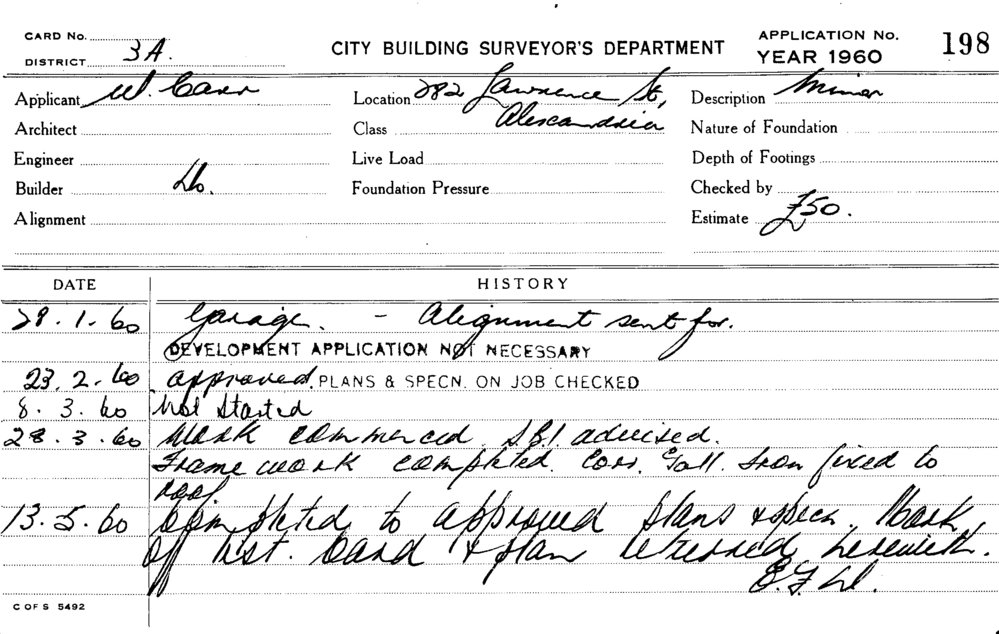 CARD No.
DISTRICT 3A.
CITY BUILDING SURVEYOR'S DEPARTMENT
APPLICATION No. 198
YEAR 1960
Applicant W. Carr
Location 282 Lawrence St,
Alexandria
Description Minor
Architect
Class
Nature of Foundation
Engineer
Live Load
Depth of Footings
Builder Do.
Foundation Pressure
Checked by
Alignment
Estimate £50.
DATE HISTORY
28.1.60 Garage. - Alignment sent for.
DEVELOPMENT APPLICATION NOT NECESSARY
23.2.60 approved. PLANS & SPECN. ON JOB CHECKED
8.3.60 Not Started
28.3.60 Work commenced. S.B.I. advised.
Frame work completed. Corr. Gall. Iron fixed to
roof.
13.5.60 Completed to approved plans & specn. Mark
off list. Card & plan returned herewith.
C OF S 5492